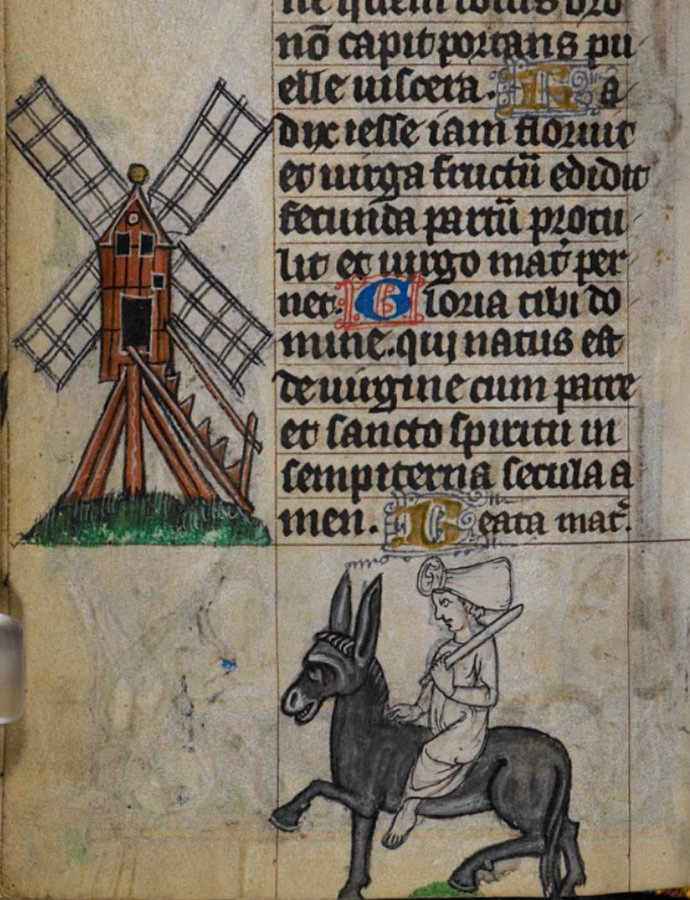 ne quem totus orb
nō capit portans pu
elle uiscera. R a
dix iesse iam floruit
et uirga fructū edidit
fecunda partū protu
lit et uirgo mat̓ per
net. Gloria tibi do
mine. qui natus est
de uirgine cum patre
et sancto spiritu in
sempiterna secula a
men. Beata mat̓.